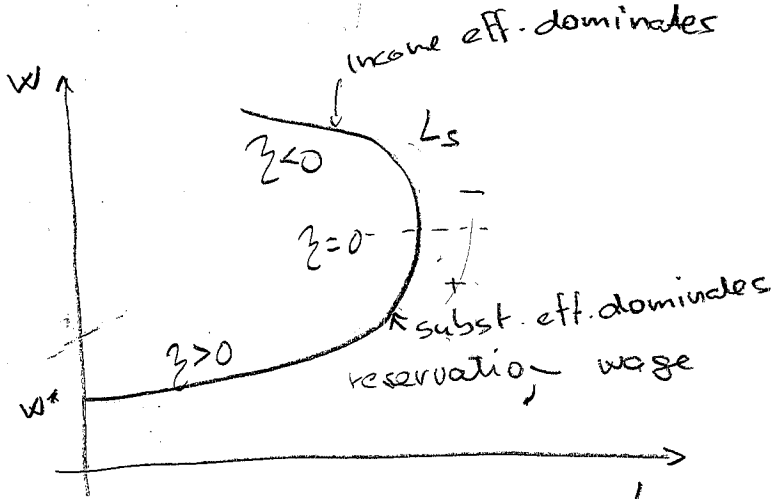 income eff. dominates
W
Ls
ξ<0
-
ξ=0
+
subst. eff. dominates
ξ>0
reservation wage
W*
L